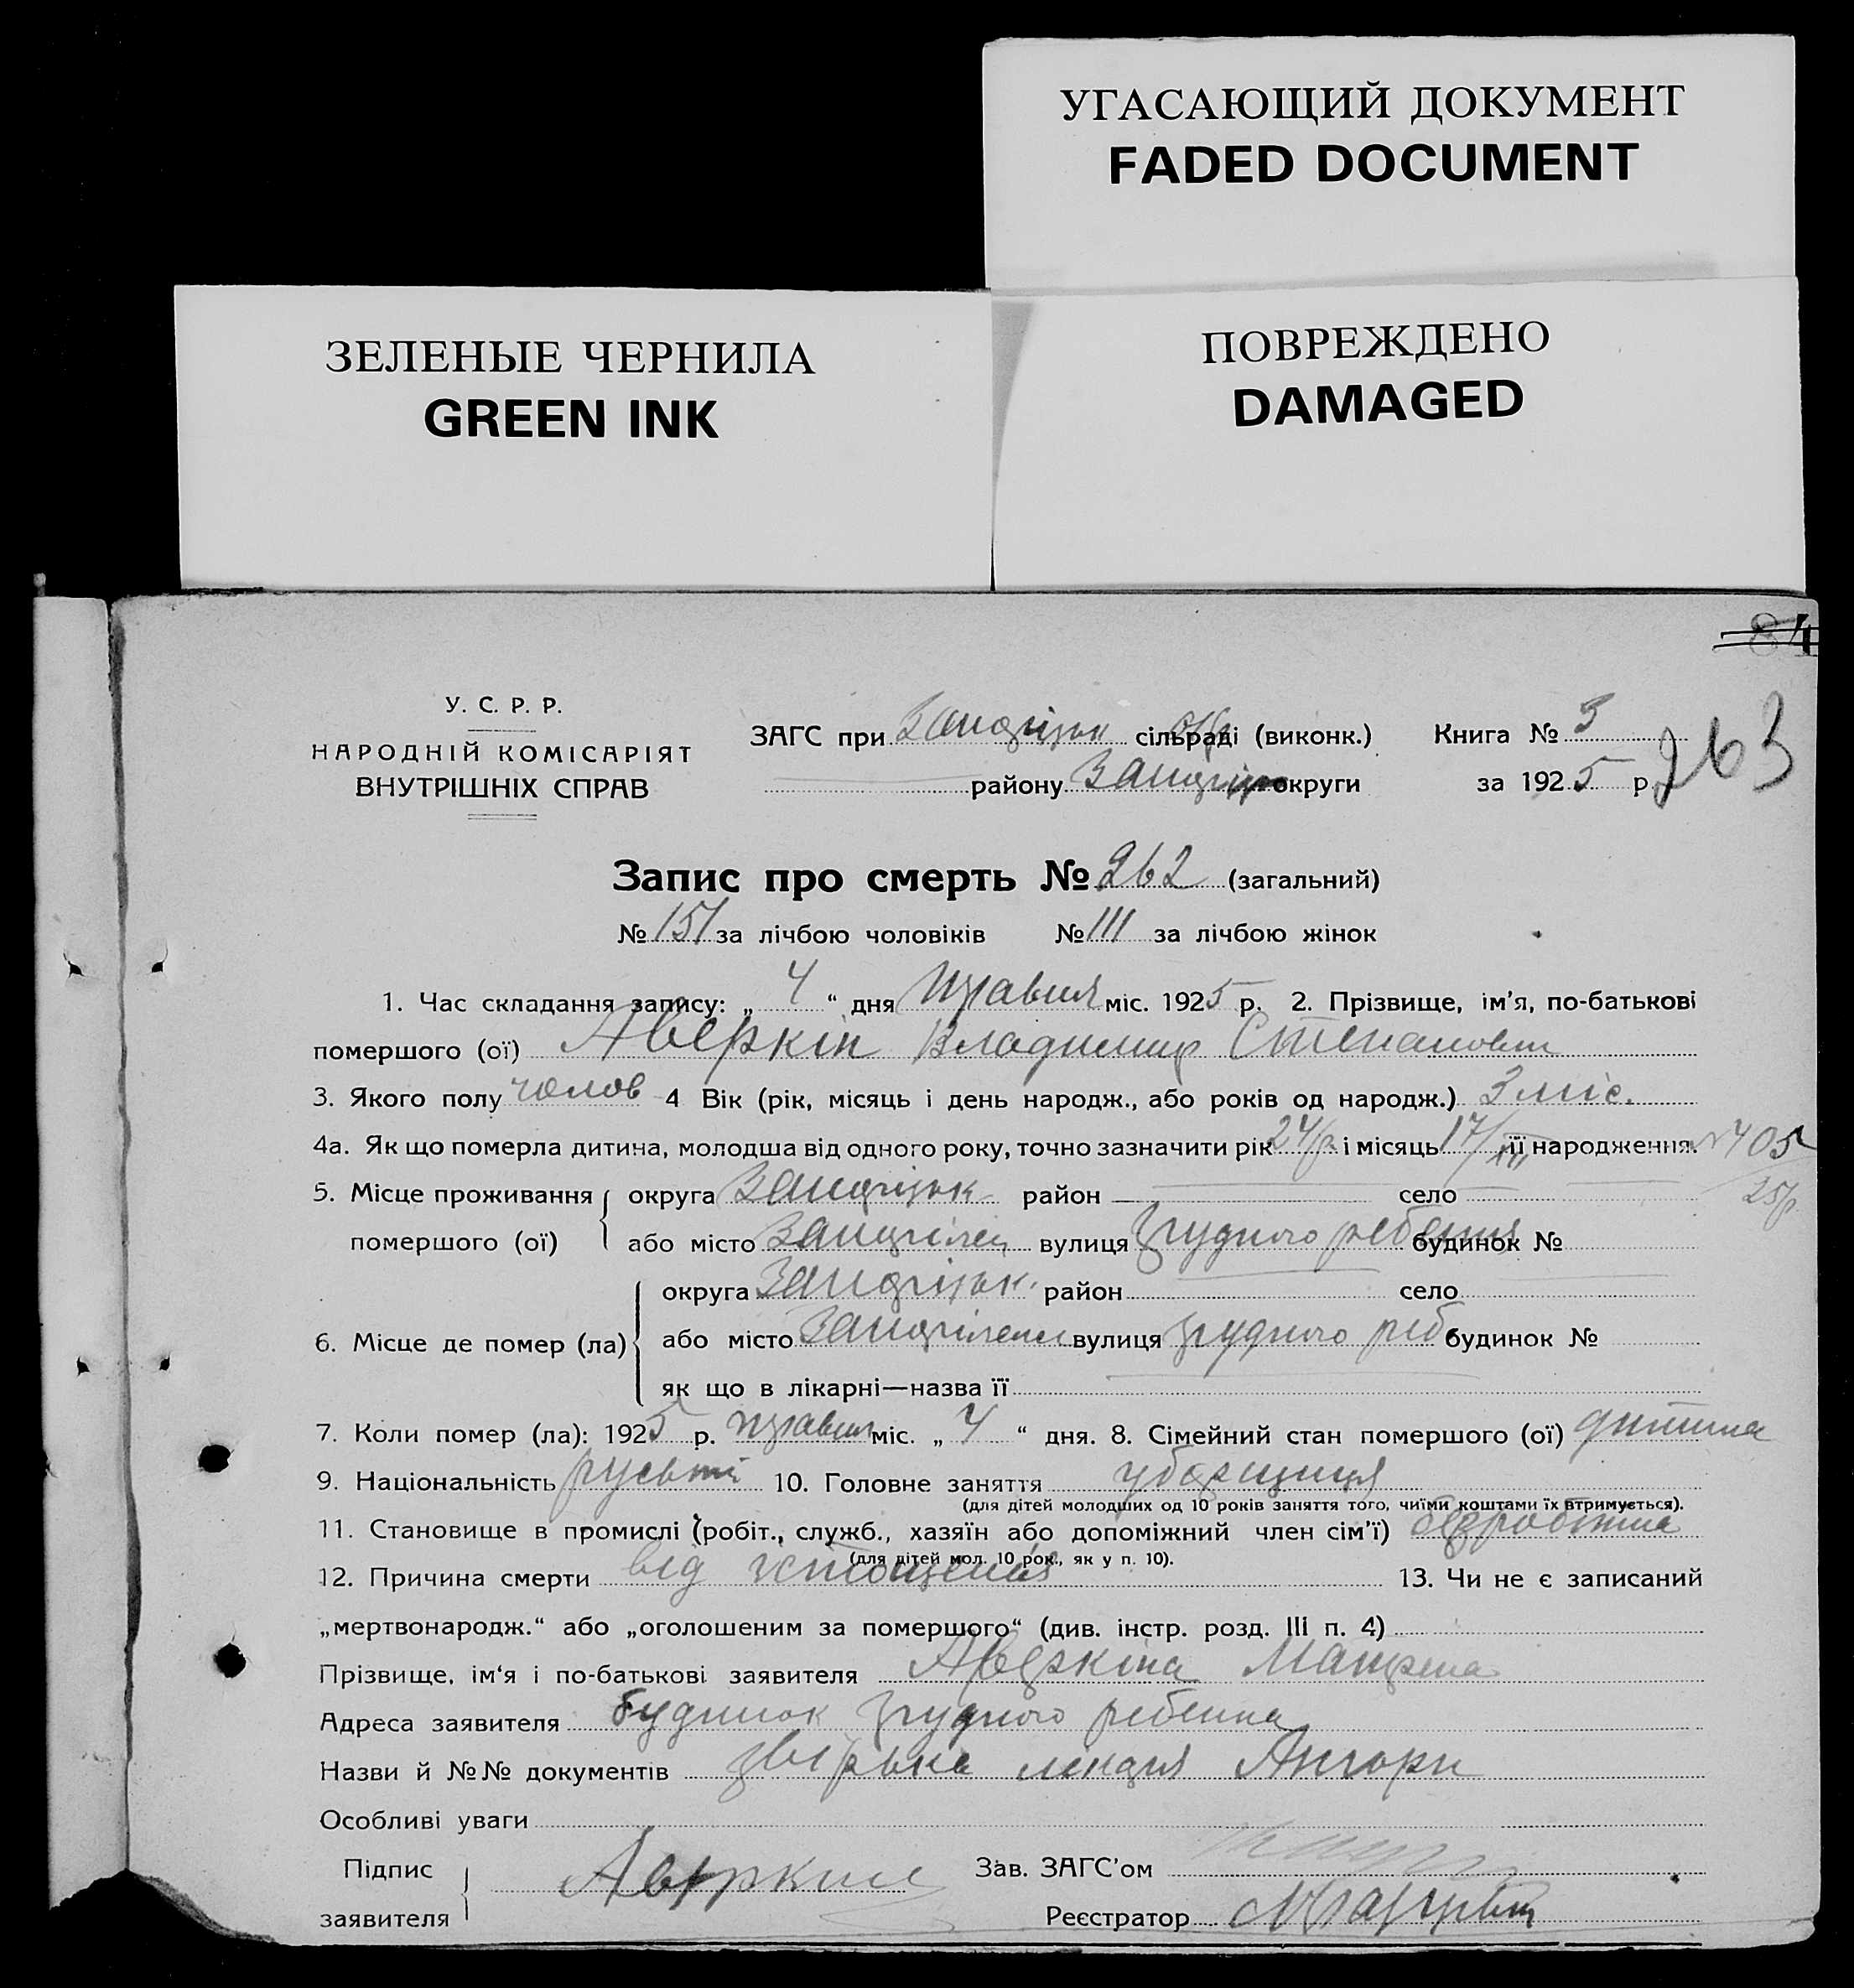 УГАСАЮЩИЙ ДОКУМЕНТ
FADED DOCUMENT
ЗЕЛЕНЫЕ ЧЕРНИЛА
GREEN INK
ПОВРЕЖДЕНО
DAMAGED
84
У. С. Р. Р.
НАРОДНІЙ КОМІСАРІЯТ
ВНУТРІШНІХ СПРАВ
ЗАГС при сільраді (виконк.) Книга №
району округи за 1925 р. 263
Запис про смерть № 262 (загальний)
№ 151 за лічбою чоловіків № 111 за лічбою жінок
1. Час складання запису: „ 4 “ дня травня міс. 1925 р. 2. Прізвище, ім’я, по-батькові
помершого (ої) Аверкін Владимир Степанович
3. Якого полу чолов 4 Вік (рік, місяць і день народж., або років од народж.) 3 міс.
4а. Як що померла дитина, молодша від одного року, точно зазначити рік 24/р. і місяць 17/XII її народження. № 405
25/р.
5. Місце проживання округа район село
помершого (ої) або місто вулиця грудного ребенка будинок №
округа район село
6. Місце де помер (ла) або місто вулиця грудного реб. будинок №
як що в лікарні—назва її
7. Коли помер (ла): 1925 р. травня міс. „ 4 “ дня. 8. Сімейний стан помершого (ої) дитина
9. Національність 10. Головне заняття уборщиця
(для дітей молодших од 10 років заняття того, чиїми коштами їх втримується).
11. Становище в промислі (робіт., служб., хазяїн або допоміжний член сім’ї) безробітна
(для дітей мол. 10 рок., як у п. 10).
12. Причина смерти від істощения 13. Чи не є записаний
„мертвонародж.“ або „оголошеним за помершого“ (див. інстр. розд. III п. 4)
Прізвище, ім‘я і по-батькові заявителя Аверкіна Матрена
Адреса заявителя будинок грудного ребенка
Назви й №№ документів
Особливі уваги
Підпис
заявителя
Зав. ЗАГС’ом
Реєстратор